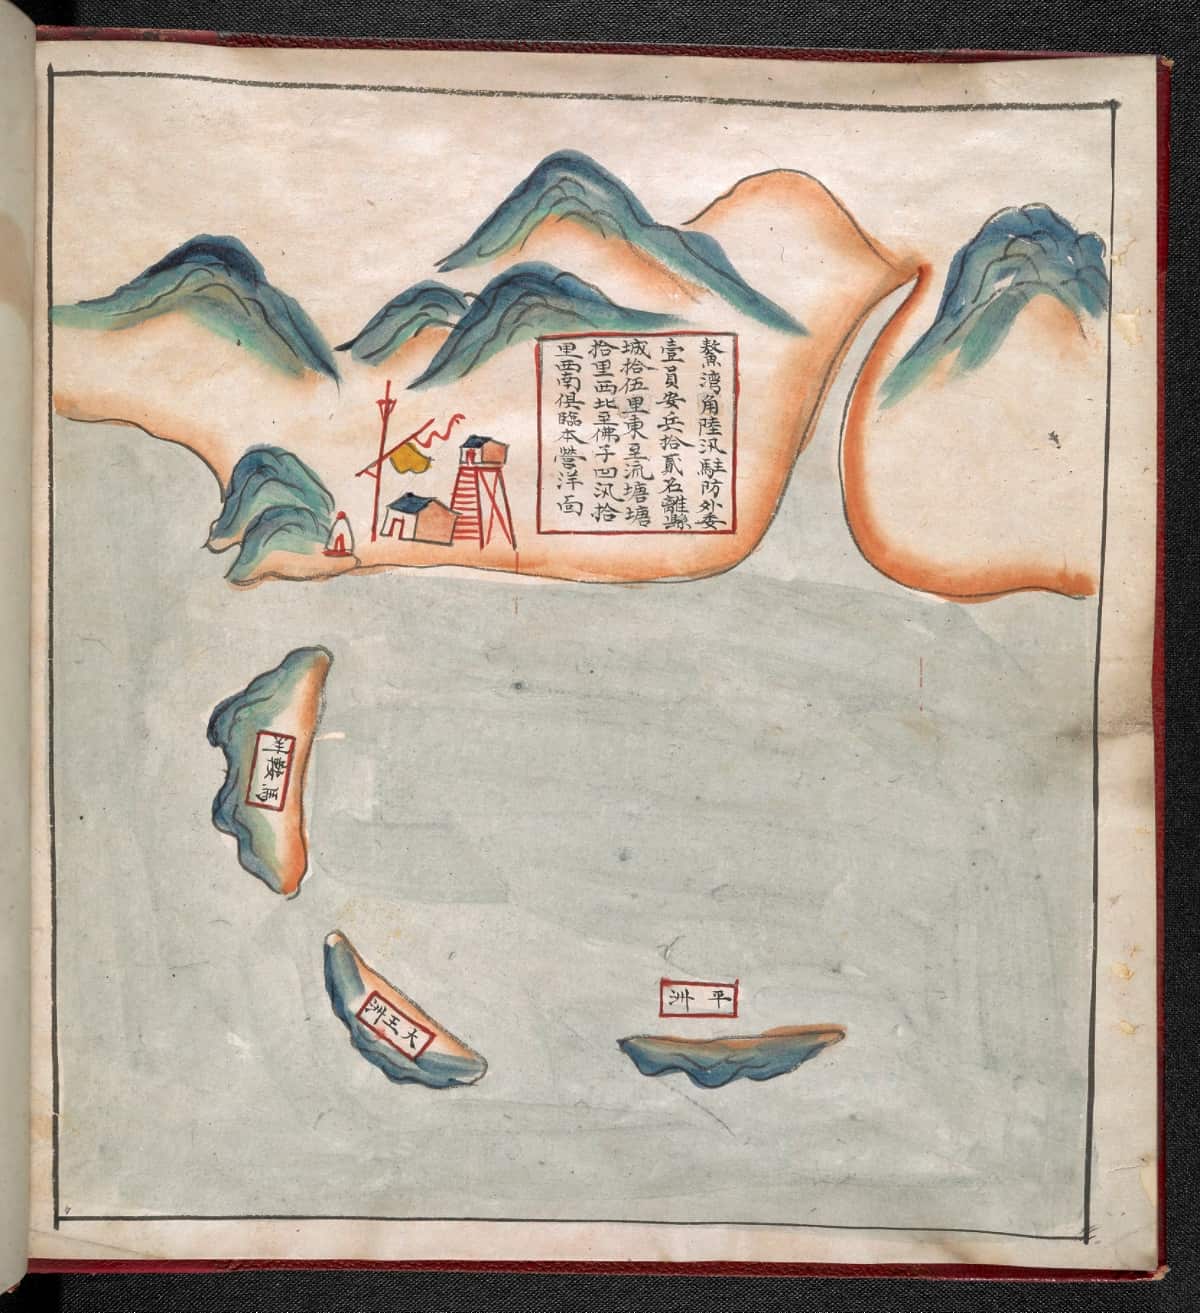 鰲湾角陸汛駐防外委
壹員安兵拾貳名離縣
城拾伍里東至流塘塘
拾里西北至佛子凹汛拾
里西南俱臨本營洋面
馬鞍洲
大王洲
平洲